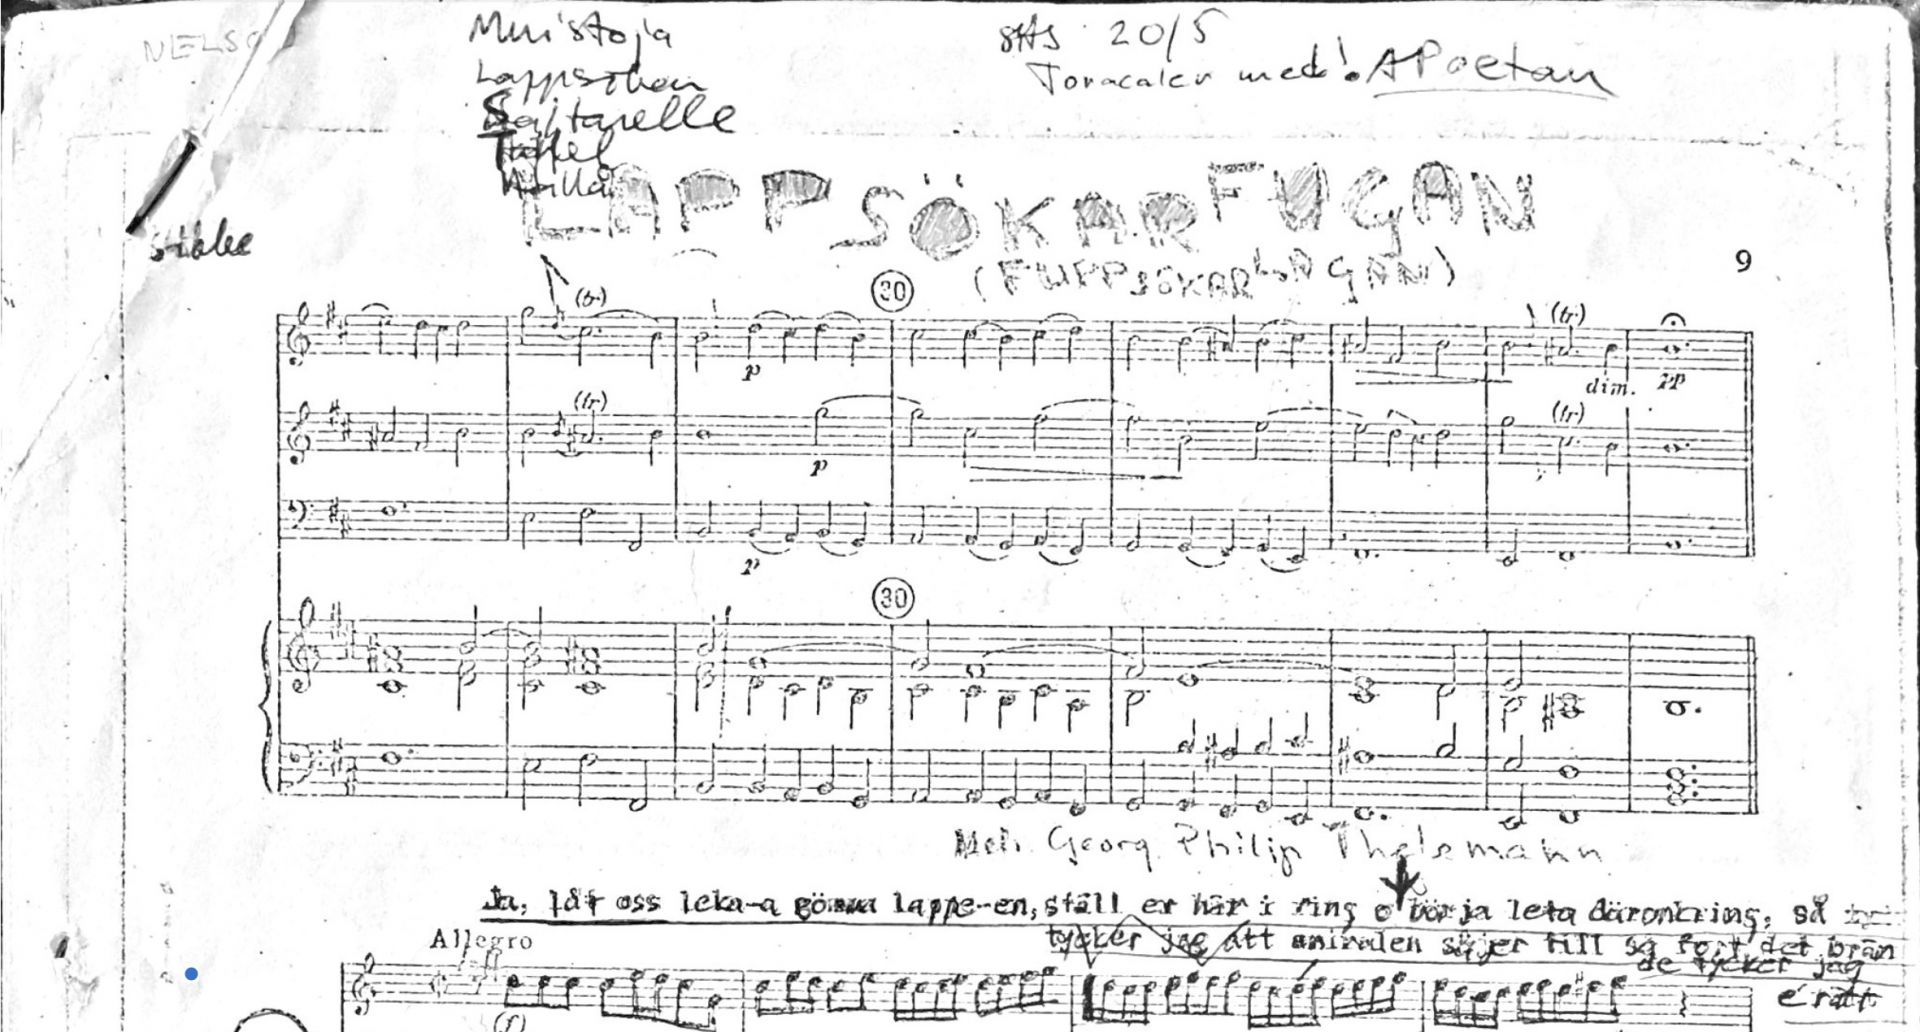 NELSON
Muristoja
Lappsoken
Saltarelle
20/5
Toracaler med! APoetan
LAPPSÖKARFUGAN
(FUPPSÖKARLAGAN)
9
30
(tr)
(tr)
(tr)
p
dim. pp
(tr)
p
p
30
Mel. Georg Philip Thelemann
Ja, låt oss leka-a gömma lappe-en, ställ er här i ring o börja leta däromkring, så
tycker jag att amiralen säjer till så fort det brän
de tycker jag
é rätt
Allegro